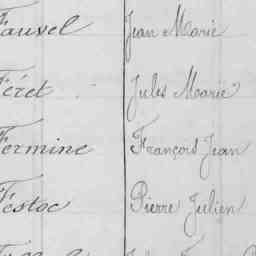 Fauvel Jean Marie
Féret Jules Marie
Fermine François Jean
Festoc Pierre Julien